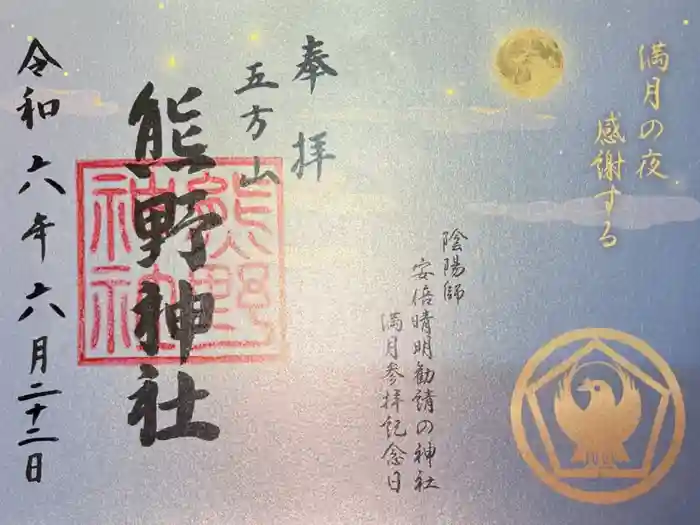 満月の夜
感謝する
奉拝
五方山
熊野神社
熊野
神社
陰陽師
安倍晴明勧請の神社
満月参拝記念日
令和六年六月二十二日